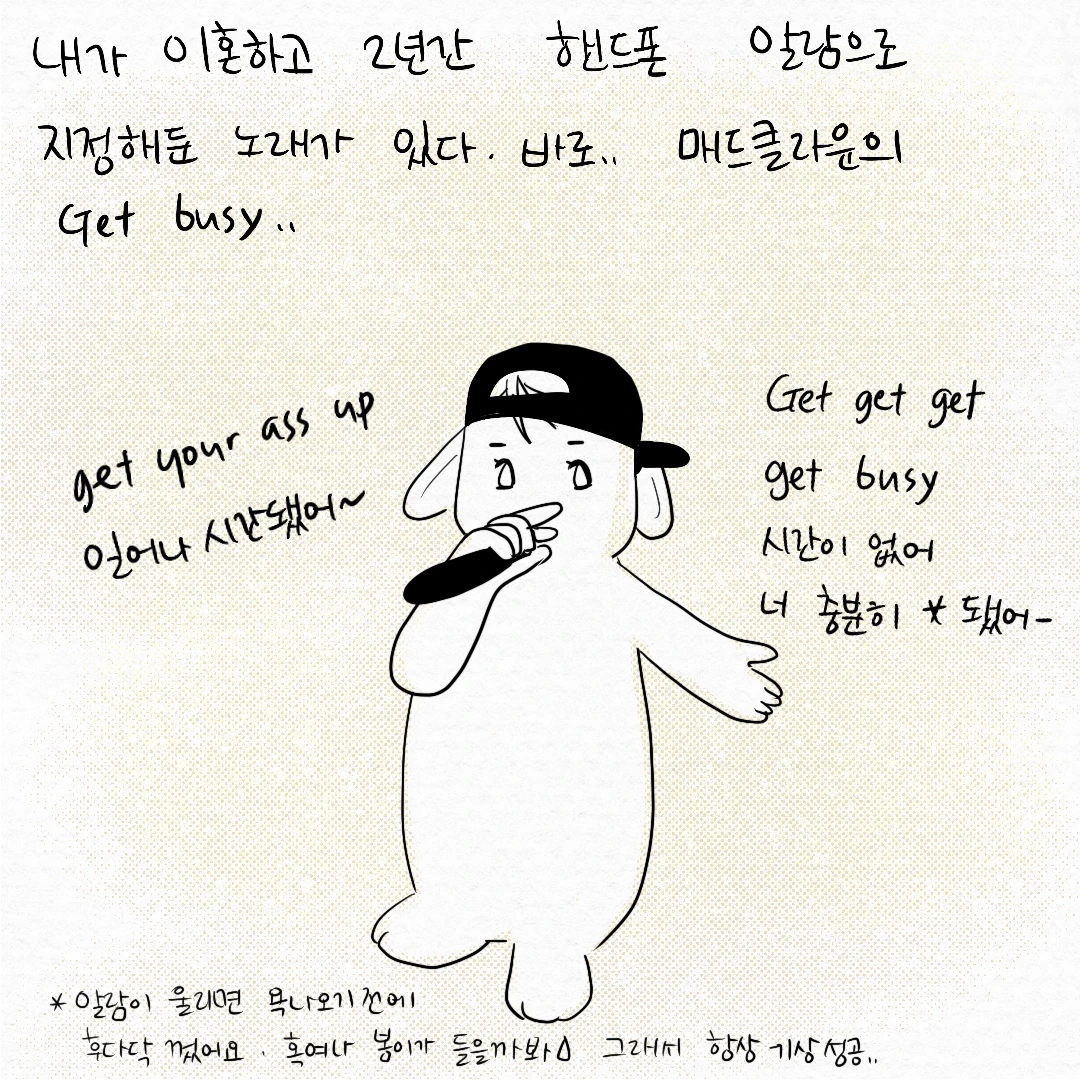 내가 이혼하고 2년간 핸드폰 알람으로
지정해둔 노래가 있다. 바로.. 매드클라운의
Get busy..
get your ass up
일어나 시간됐어~
Get get get
get busy
시간이 없어
너 충분히 * 됐어-
* 알람이 울리면 욕나오기전에
후다닥 껐어요. 혹여나 봉이가 들을까봐 그래서 항상 기상성공..